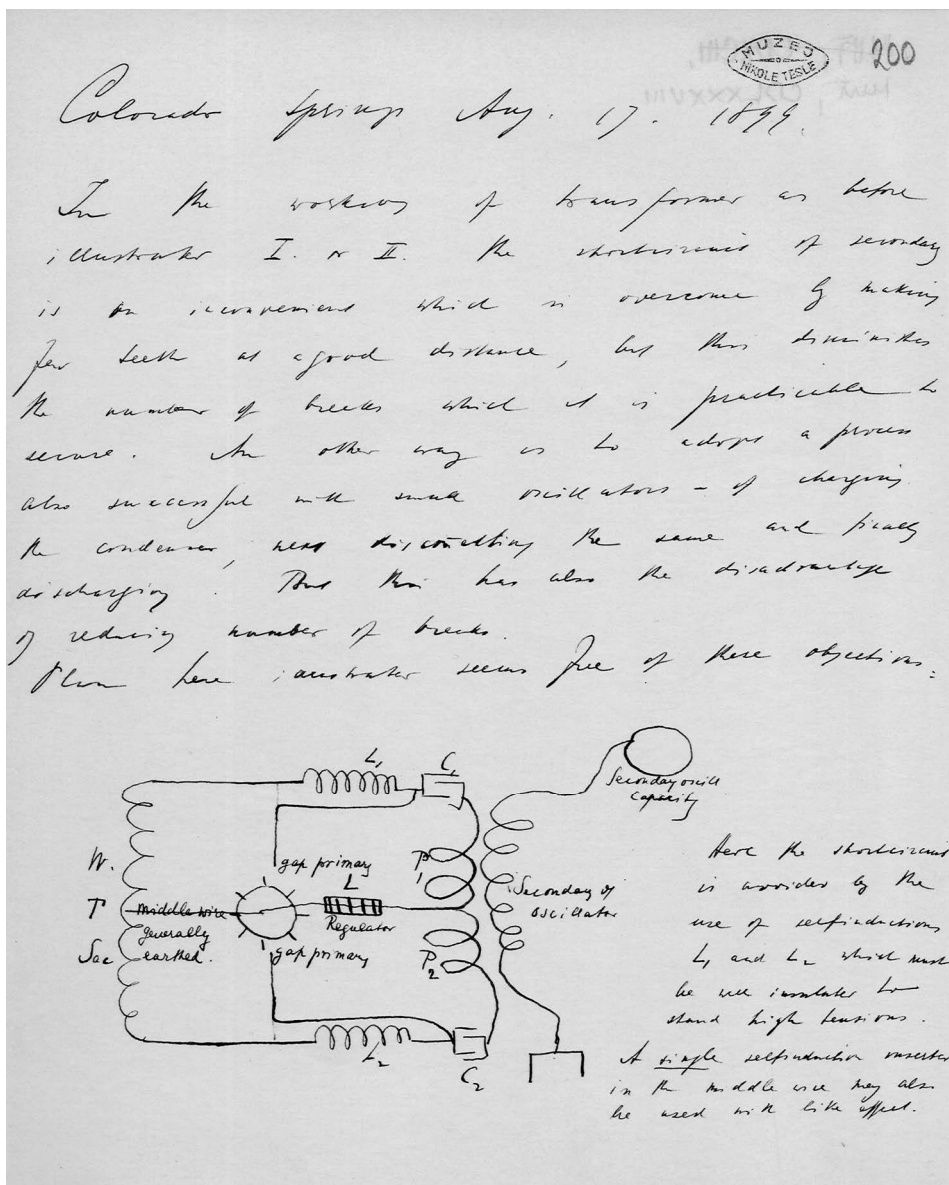 MUZEJ
NIKOLE TESLE
200
Colorado Springs Aug. 17. 1899.
In the working of transformer as before
illustrated I. or II. the shortcircuit of secondary
is an inconvenience which is overcome by making
few teeth at a good distance, but this diminishes
the number of breaks which it is practicable to
secure. An other way is to adopt a process
also successful with small oscillators - of charging
the condenser, next disconnecting the same and finally
discharging. But this has also the disadvantage
of reducing number of breaks.
Plan here illustrated seems free of these objections:
L1
C1
Secondary oscill
Capacity
W.
T
Sec
middle wire
generally
earthed.
gap primary
L
Regulator
gap primary
P1
P2
Secondary of
Oscillator
L2
C2
Here the shortcircuit
is avoided by the
use of selfinductions
L1 and L2 which must
be well insulated to
stand high tensions.
A single selfinduction inserted
in the middle wire may also
be used with like effect.